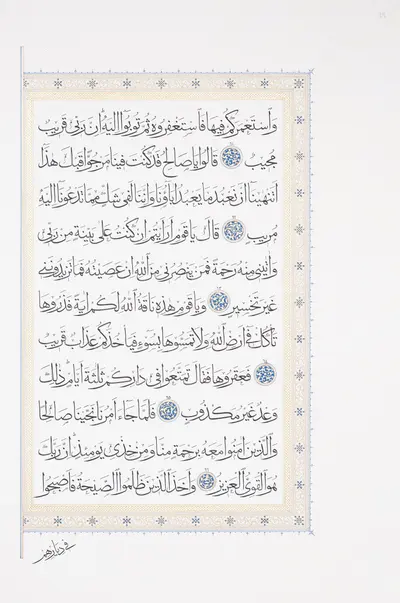 واستعمركم فيها فاستغفروه ثم توبوا اليه ان ربي قريب
مجيب قالوا يا صالح قد كنت فينا مرجوا قبل هذا
اتنهينا ان نعبد ما يعبد اباؤنا واننا لفي شك مما تدعونا اليه
مريب قال يا قوم ارايتم ان كنت على بينة من ربي
واتيني منه رحمة فمن ينصرني من الله ان عصيته فما تزيدونني
غير تخسير ويا قوم هذه ناقة الله لكم اية فذروها
تاكل في ارض الله ولا تمسوها بسوء فياخذكم عذاب قريب
فعقروها فقال تمتعوا في داركم ثلثة ايام ذلك
وعد غير مكذوب فلما جاء امرنا نجينا صالحا
والذين امنوا معه برحمة منا ومن خزي يومئذ ان ربك
هو القوي العزيز واخذ الذين ظلموا الصيحة فاصبحوا
في ديارهم